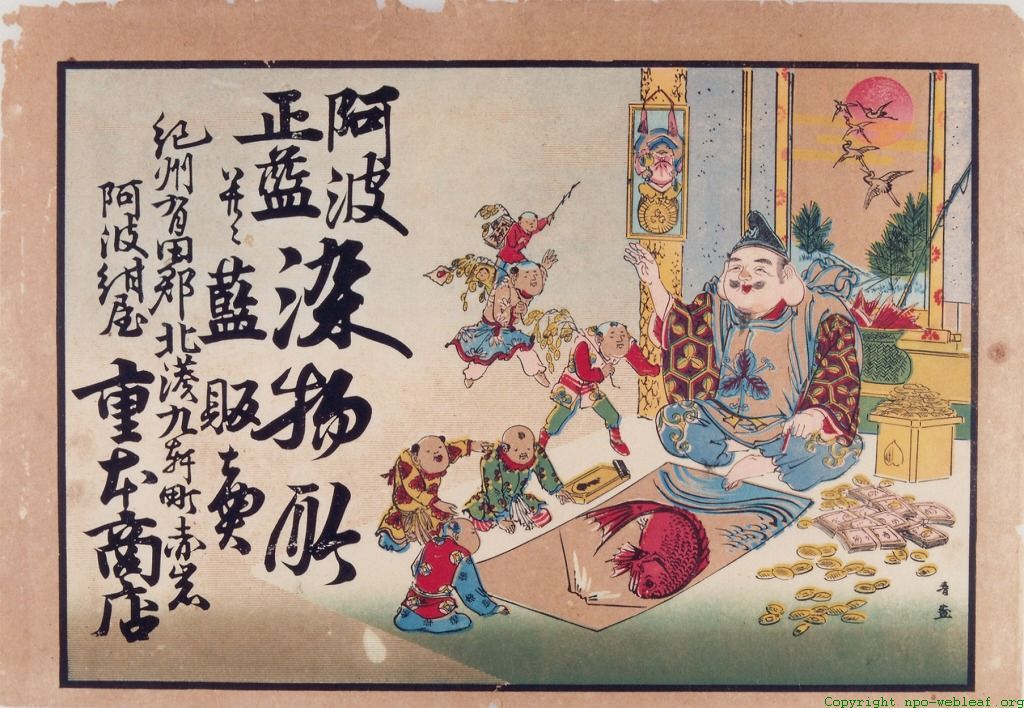 阿波
正藍
染物所
并ニ
藍販賣
紀州有田郡北湊九軒町赤岩
阿波紺屋
重本商店
Copyright npo-webleaf.org